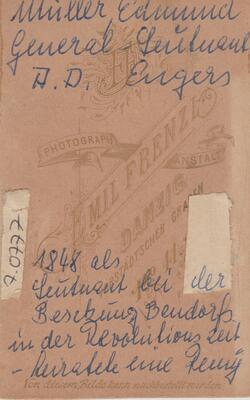 Müller, Edmund
General-Leutnant
A.D. Engers
PHOTOGRAPH
ANSTALT
EMIL FRENZL
DANZIG
VORSTÄDTSCHER GRABEN
7.0777
1848 als
Leutnant bei der
Besetzung Bendorfs
in der Revolutionszeit
- heiratete eine Remy
Von diesem Bilde kann nachbestellt werden